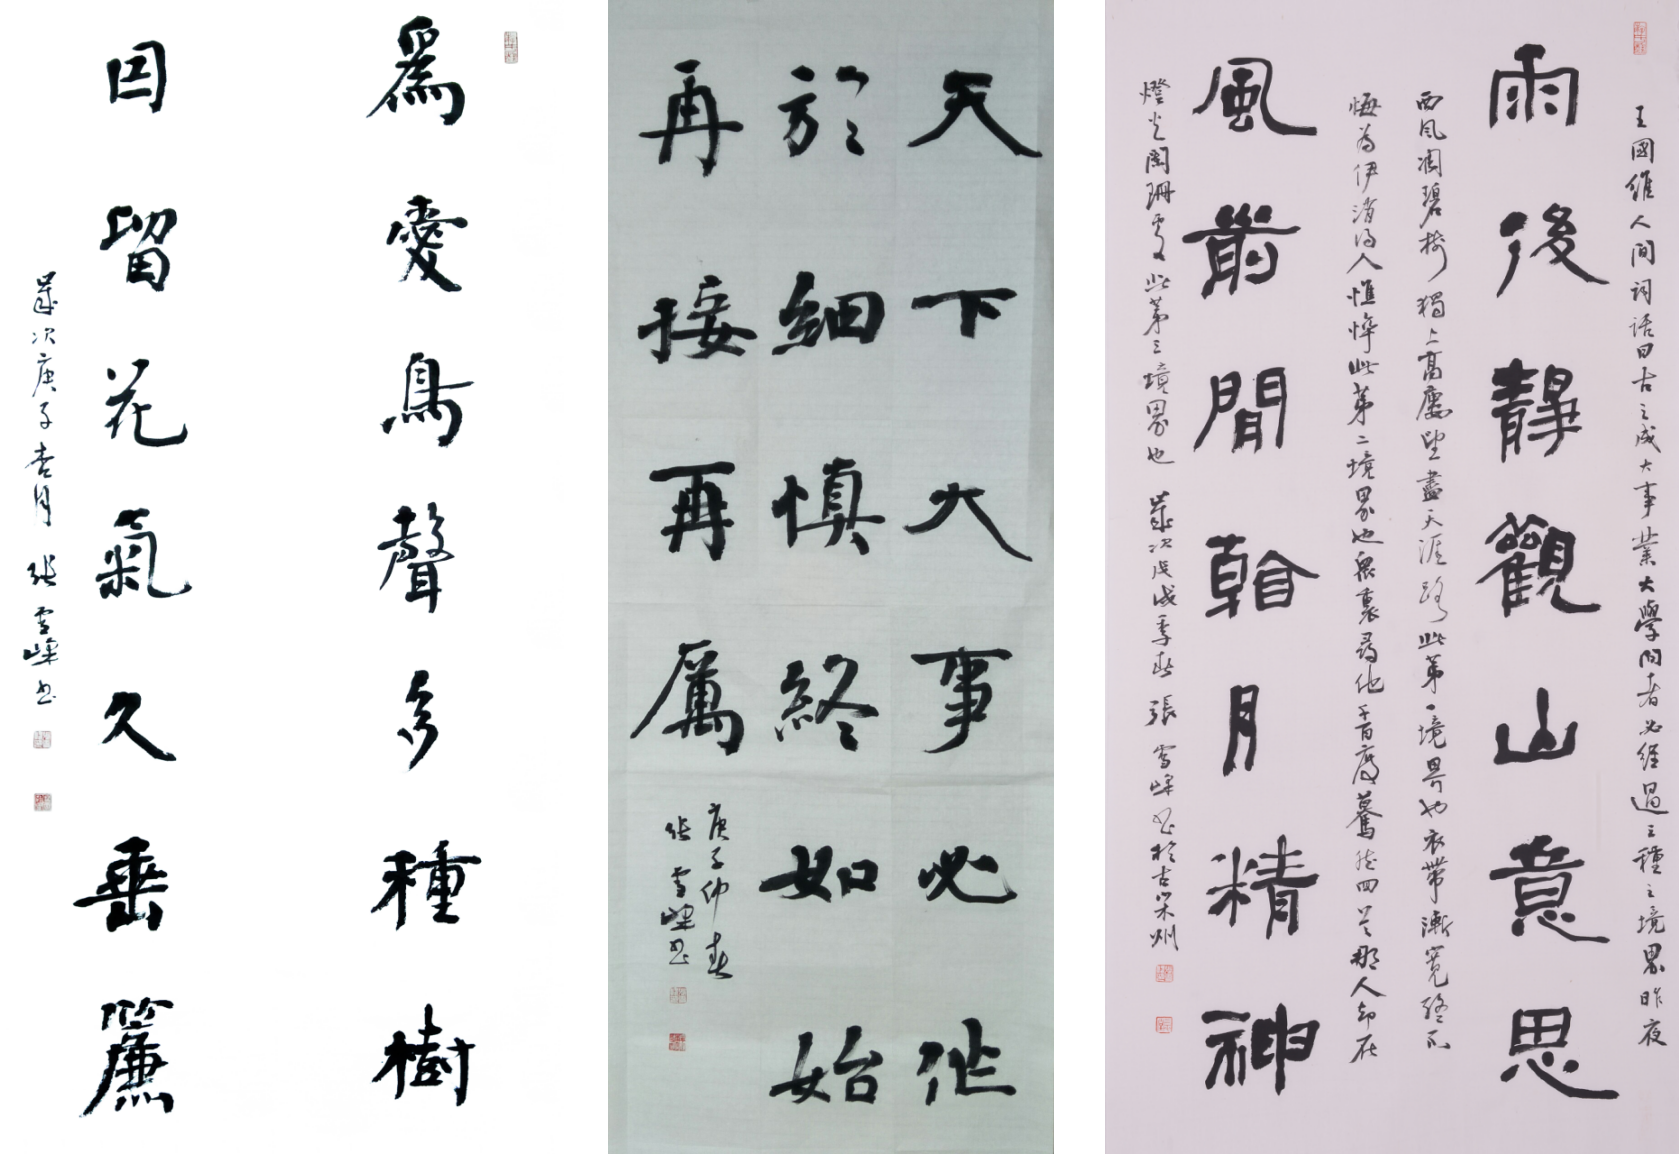 為愛鳥聲多種樹
因留花氣久垂簾
歲次庚子杏月 張雪峰書
天下大事必作
於細慎終如始
再接再厲
庚子仲春
張雪峰書
王國維人間詞話曰古之成大事業大學問者必經過三種之境界昨夜
雨後靜觀山意思
西風凋碧樹獨上高樓望盡天涯路此第一境界也衣帶漸寬終不
悔為伊消得人憔悴此第二境界也眾裏尋他千百度驀然回首那人卻在
風前閒看月精神
燈火闌珊處此第三境界也 歲次戊戌季春 張雪峰書於古宋州